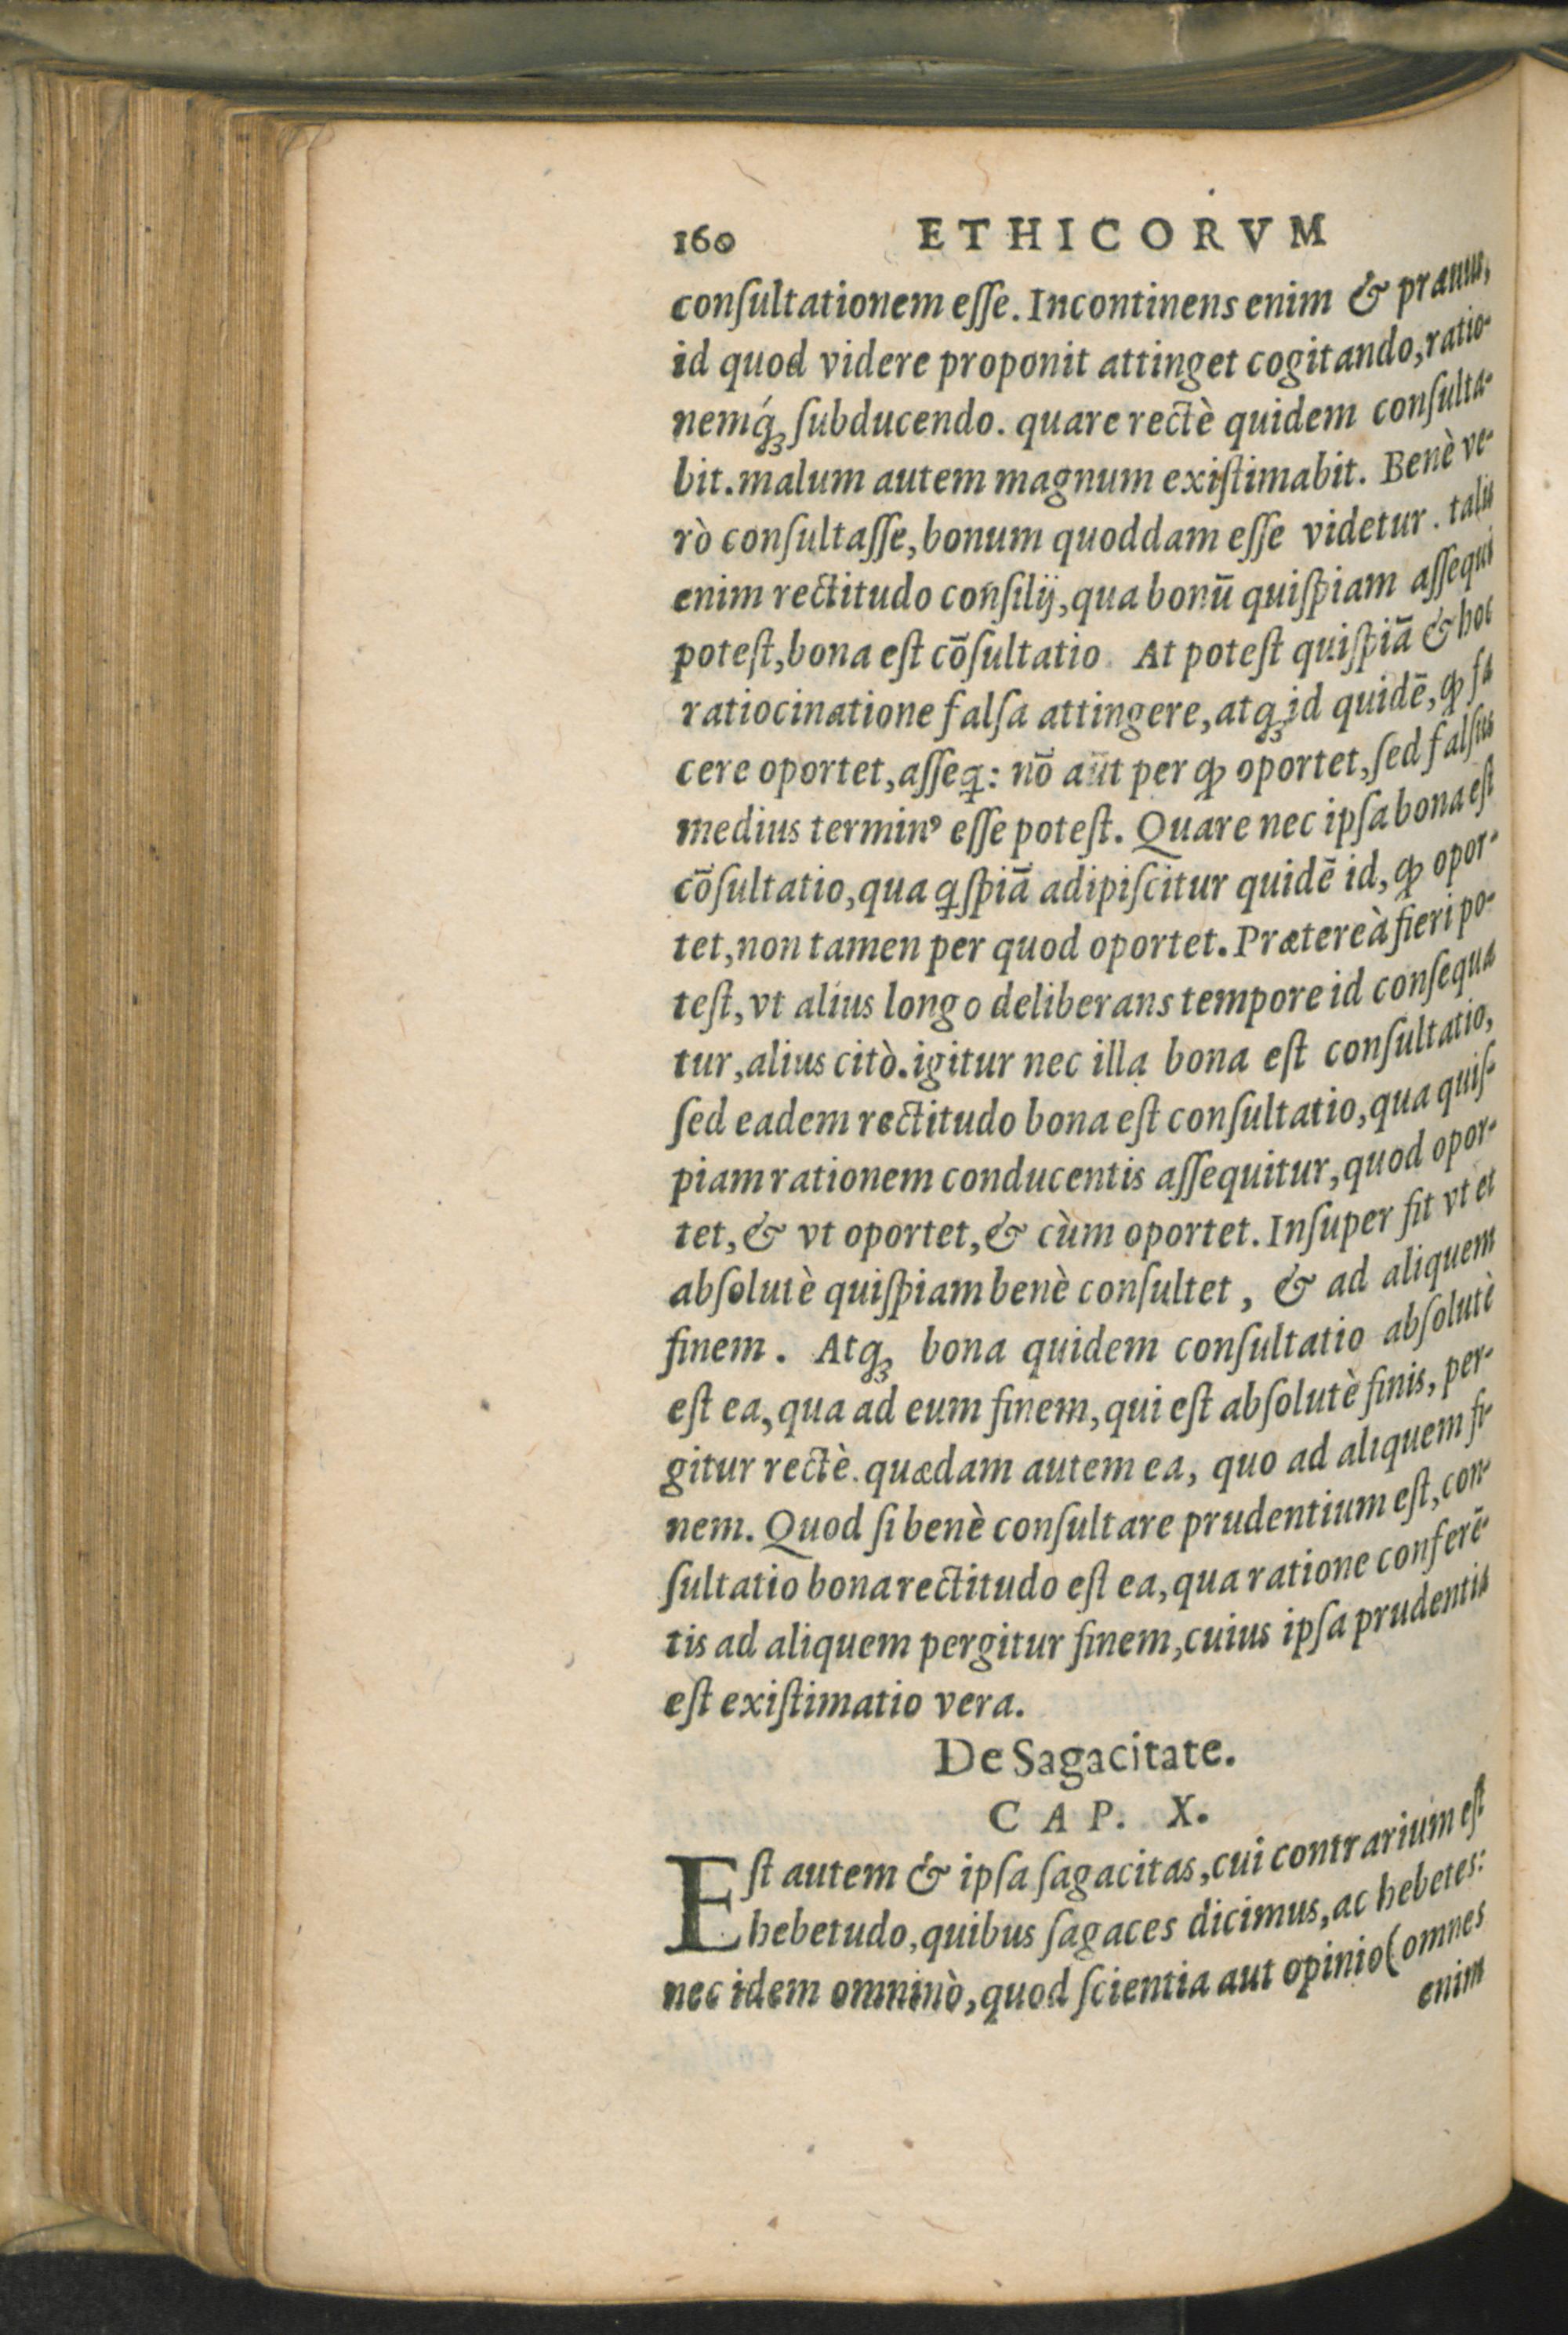 160 ETHICORVM
conſultationem eſſe. Incontinens enim & prauus,
id quod videre proponit attinget cogitando, ratio-
nemq́ꝫ ſubducendo. quare rectè quidem conſulta-
bit. malum autem magnum exiſtimabit. Benè ve-
rò conſultaſſe, bonum quoddam eſſe videtur. talis
enim rectitudo conſilij, qua bonū quiſpiam aſſequi
poteſt, bona eſt cōſultatio. At poteſt quiſpiā & hoc
ratiocinatione falſa attingere, atqꝫ id quidē, ꝙ fa
cere oportet, aſſeꝗ: nō aūt per ꝙ oportet, ſed falſus
medius terminꝰ eſſe poteſt. Quare nec ipſa bona eſt
cōſultatio, qua ꝗſpiā adipiſcitur quidē id, ꝙ opor-
tet, non tamen per quod oportet. Prætereà fieri po-
teſt, vt alius longo deliberans tempore id conſequa
tur, alius citò. igitur nec illa bona eſt conſultatio,
ſed eadem rectitudo bona eſt conſultatio, qua quiſ-
piam rationem conducentis aſſequitur, quod opor-
tet, & vt oportet, & cùm oportet. Inſuper fit vt et
abſolutè quiſpiam benè conſultet, & ad aliquem
finem. Atqꝫ bona quidem conſultatio abſolutè
eſt ea, qua ad eum finem, qui eſt abſolutè finis, per-
gitur rectè. quædam autem ea, quo ad aliquem fi-
nem. Quod ſi benè conſultare prudentium eſt, con-
ſultatio bona rectitudo eſt ea, qua ratione conferē-
tis ad aliquem pergitur finem, cuius ipſa prudentia
eſt exiſtimatio vera.
De Sagacitate.
CAP. X.
Eſt autem & ipſa ſagacitas, cui contrarium eſt
hebetudo, quibus ſagaces dicimus, ac hebetes:
nec idem omninò, quod ſcientia aut opinio (omnes
enim